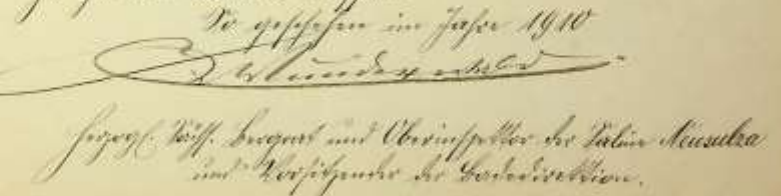 So geschehen im Jahre 1910
Wunderwald
Herzogl. Sächs. Bergrat und Oberinspektor der Saline Neusulza
und Vorsitzender der Badedirektion.